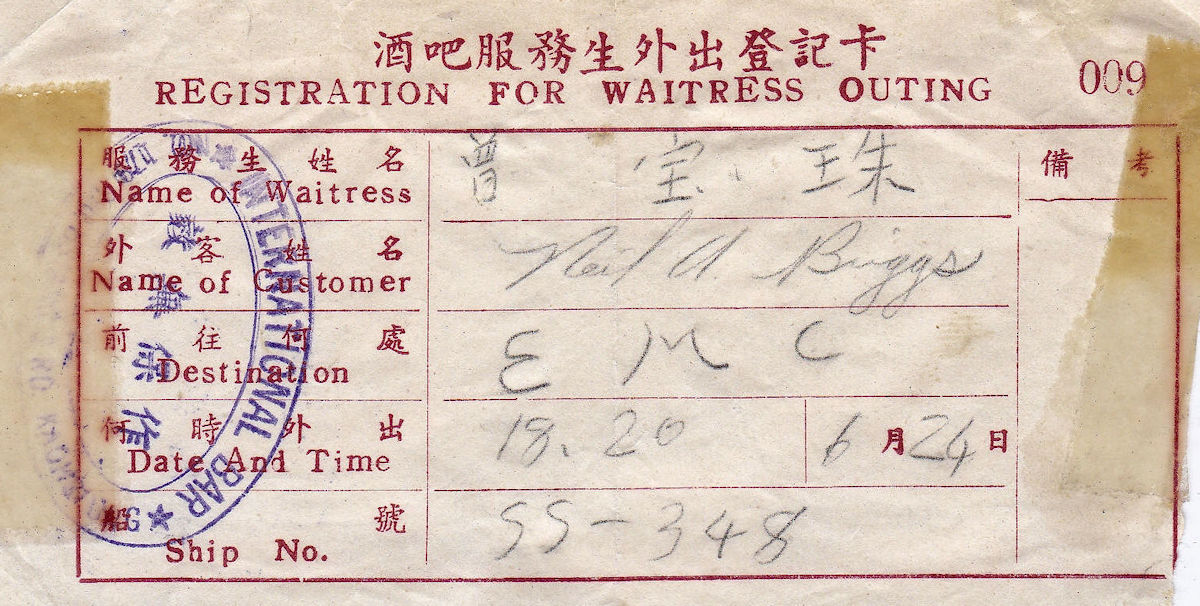 酒吧服務生外出登記卡
REGISTRATION FOR WAITRESS OUTING
009
服務生姓名
Name of Waitress
曾宝珠
備考
外客姓名
Name of Customer
Neil A. Briggs
前往何處
Destination
E M C
何時外出
Date And Time
18.20
6月24日
船號
Ship No.
SS-348
INTERNATIONAL BAR